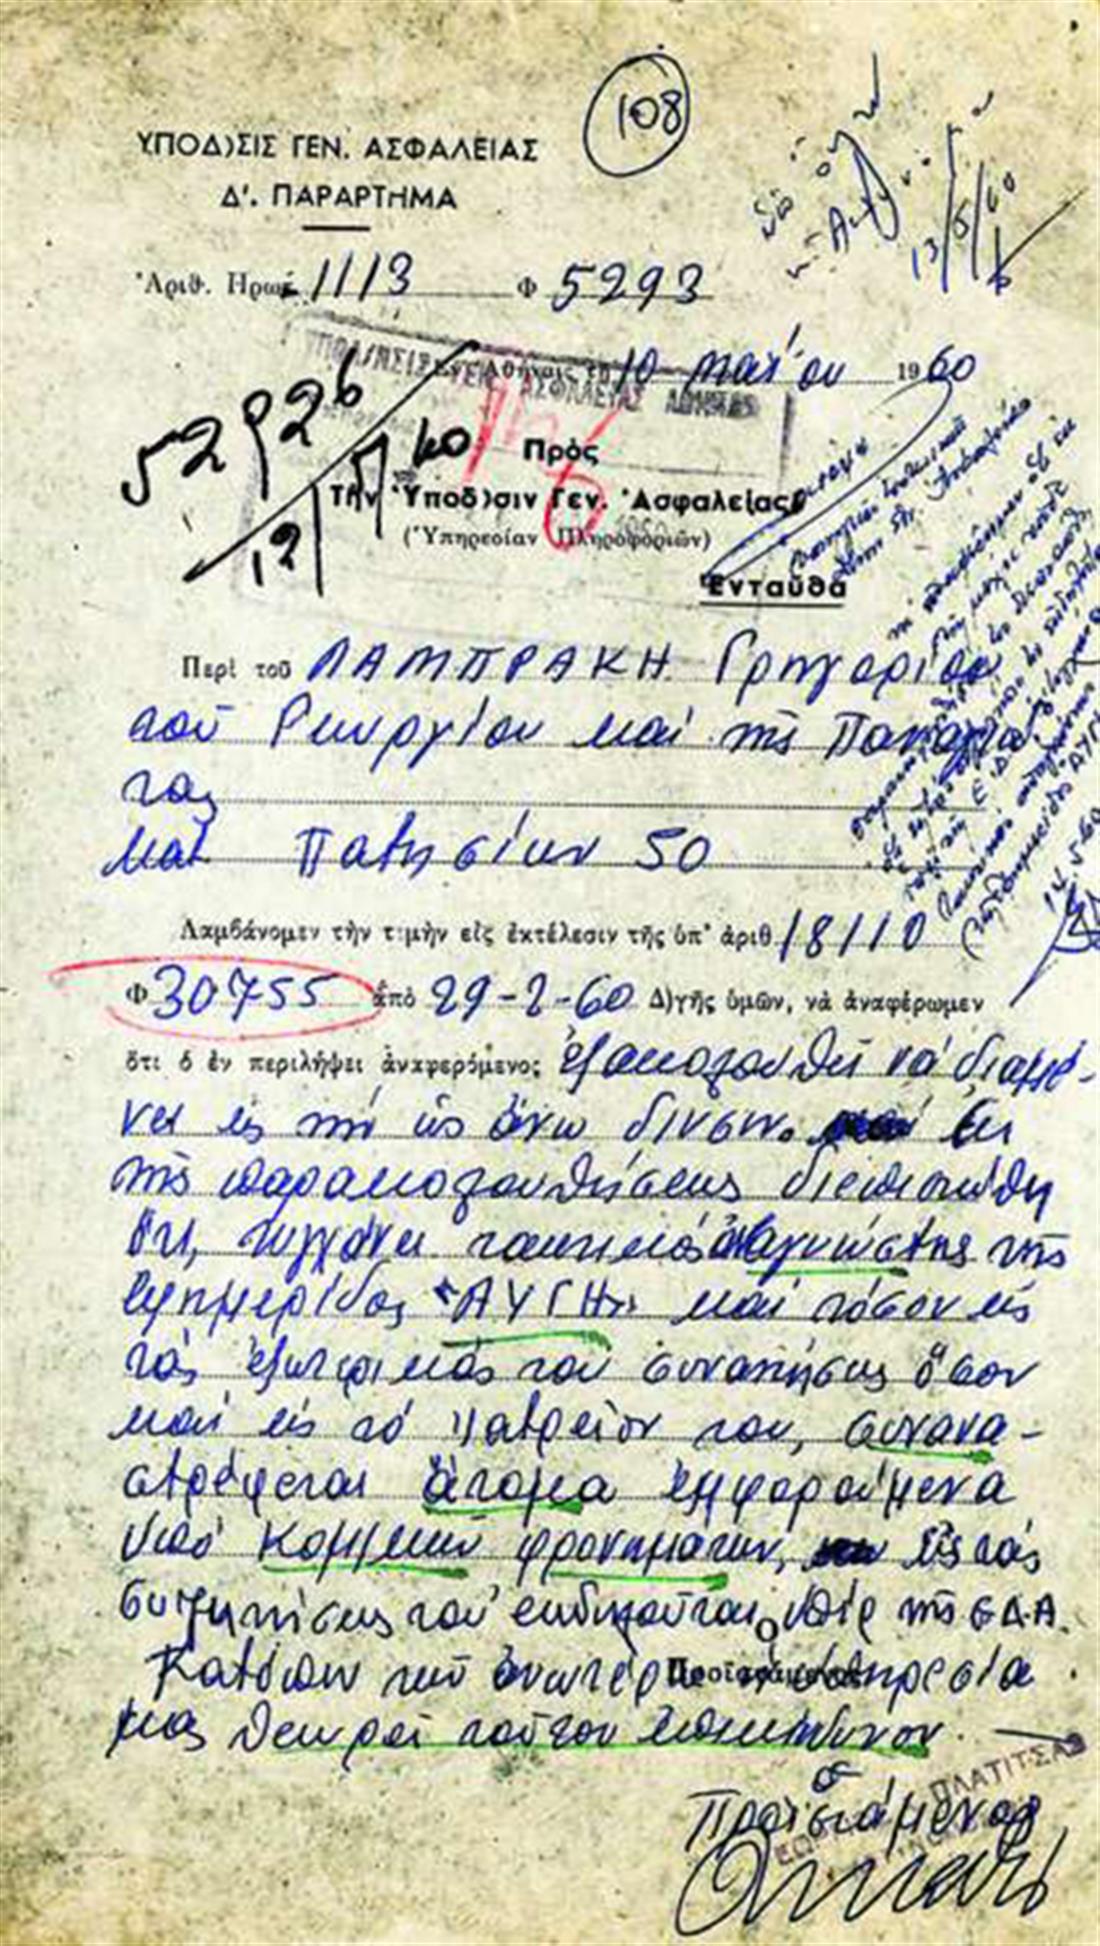 108
ΥΠΟΔ)ΣΙΣ ΓΕΝ. ΑΣΦΑΛΕΙΑΣ
Δ'. ΠΑΡΑΡΤΗΜΑ
13/5/60
Ἀριθ. Πρωτ. 1113 Φ 5293
ΥΠΟΔ)ΝΣΙΣ ΓΕΝ. ΑΣΦΑΛΕΙΑΣ ΑΘΗΝΩΝ
Ἐν Ἀθήναις τῇ 10 Μαΐου 1960
52926
12/5/60
Πρὸς
Τὴν Ὑποδ)σιν Γεν. Ἀσφαλείας
(Ὑπηρεσίαν Πληροφοριῶν)
Ἐνταῦθα
Περὶ τοῦ ΛΑΜΠΡΑΚΗ Γρηγορίου
τοῦ Γεωργίου καὶ τῆς
κατ. Πατησίων 50
14.5.60
Λαμβάνομεν τὴν τιμὴν εἰς ἐκτέλεσιν τῆς ὑπ' ἀριθ 18110
Φ 30755 ἀπὸ 29-2-60 Δ)γῆς ὑμῶν, νὰ ἀναφέρωμεν
ὅτι ὁ ἐν περιλήψει ἀναφερόμενος ἐξακολουθεῖ νά διαμέ-
νει εἰς τήν ὡς ἄνω δ)νσιν. Ἐκ
τῆς παρακολουθήσεως διεπιστώθη
ὅτι, τυγχάνει τακτικός ἀναγνώστης τῆς
ἐφημερίδος "ΑΥΓΗ" καί τόσον εἰς
τάς ἐξωτερικάς του συναντήσεις ὅσον
καί εἰς τό ἰατρεῖον του, συνανα-
στρέφεται ἄτομα ἐμφορούμενα
ὑπό Κομ)κῶν φρονημάτων, εἰς τάς
συζητήσεις του ἐκδηλοῦται ὑπέρ τῆς ΕΔΑ.
Κατόπιν τῶν ἀνωτέρω ἡ ὑπηρεσία
μας θεωρεῖ τοῦτον ἐπικίνδυνον.
Ὁ
Προϊστάμενος
ὁ
Προϊστάμενος
ΠΛΑΤΙΤΣΑΣ